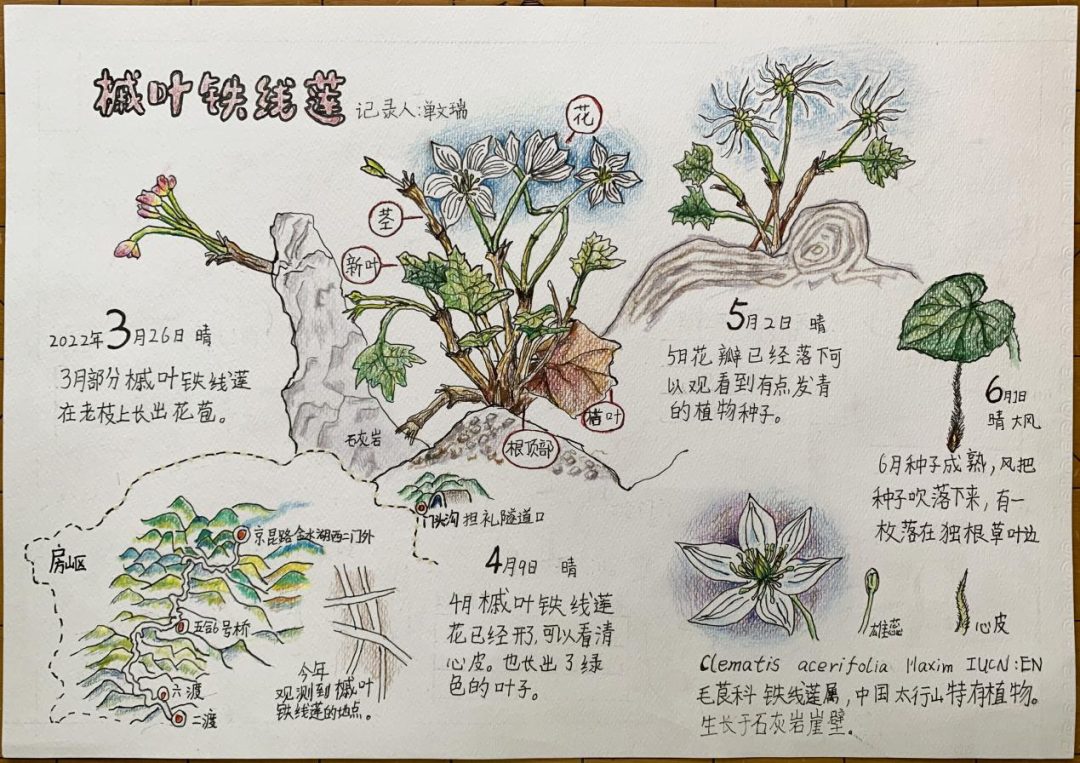 槭叶铁线莲
记录人:单文瑞
花
茎
新叶
2022年3月26日 晴
3月部分槭叶铁线莲
在老枝上长出花苞。
石灰岩
枯叶
根顶部
5月2日 晴
5月花瓣已经落下可
以观看到有点发青
的植物种子。
6月1日
晴 大风
6月种子成熟,风把
种子吹落下来,有一
枚落在独根草叶边
门头沟 担礼隧道口
4月9日 晴
4月槭叶铁线莲
花已经开了,可以看清
心皮。也长出了绿
色的叶子。
房山区
京昆路金水湖西二门外
五合6号桥
六渡
二渡
今年
观测到槭叶
铁线莲的地点。
雄蕊
心皮
Clematis acerifolia Maxim IUCN:EN
毛茛科 铁线莲属,中国太行山特有植物。
生长于石灰岩崖壁。